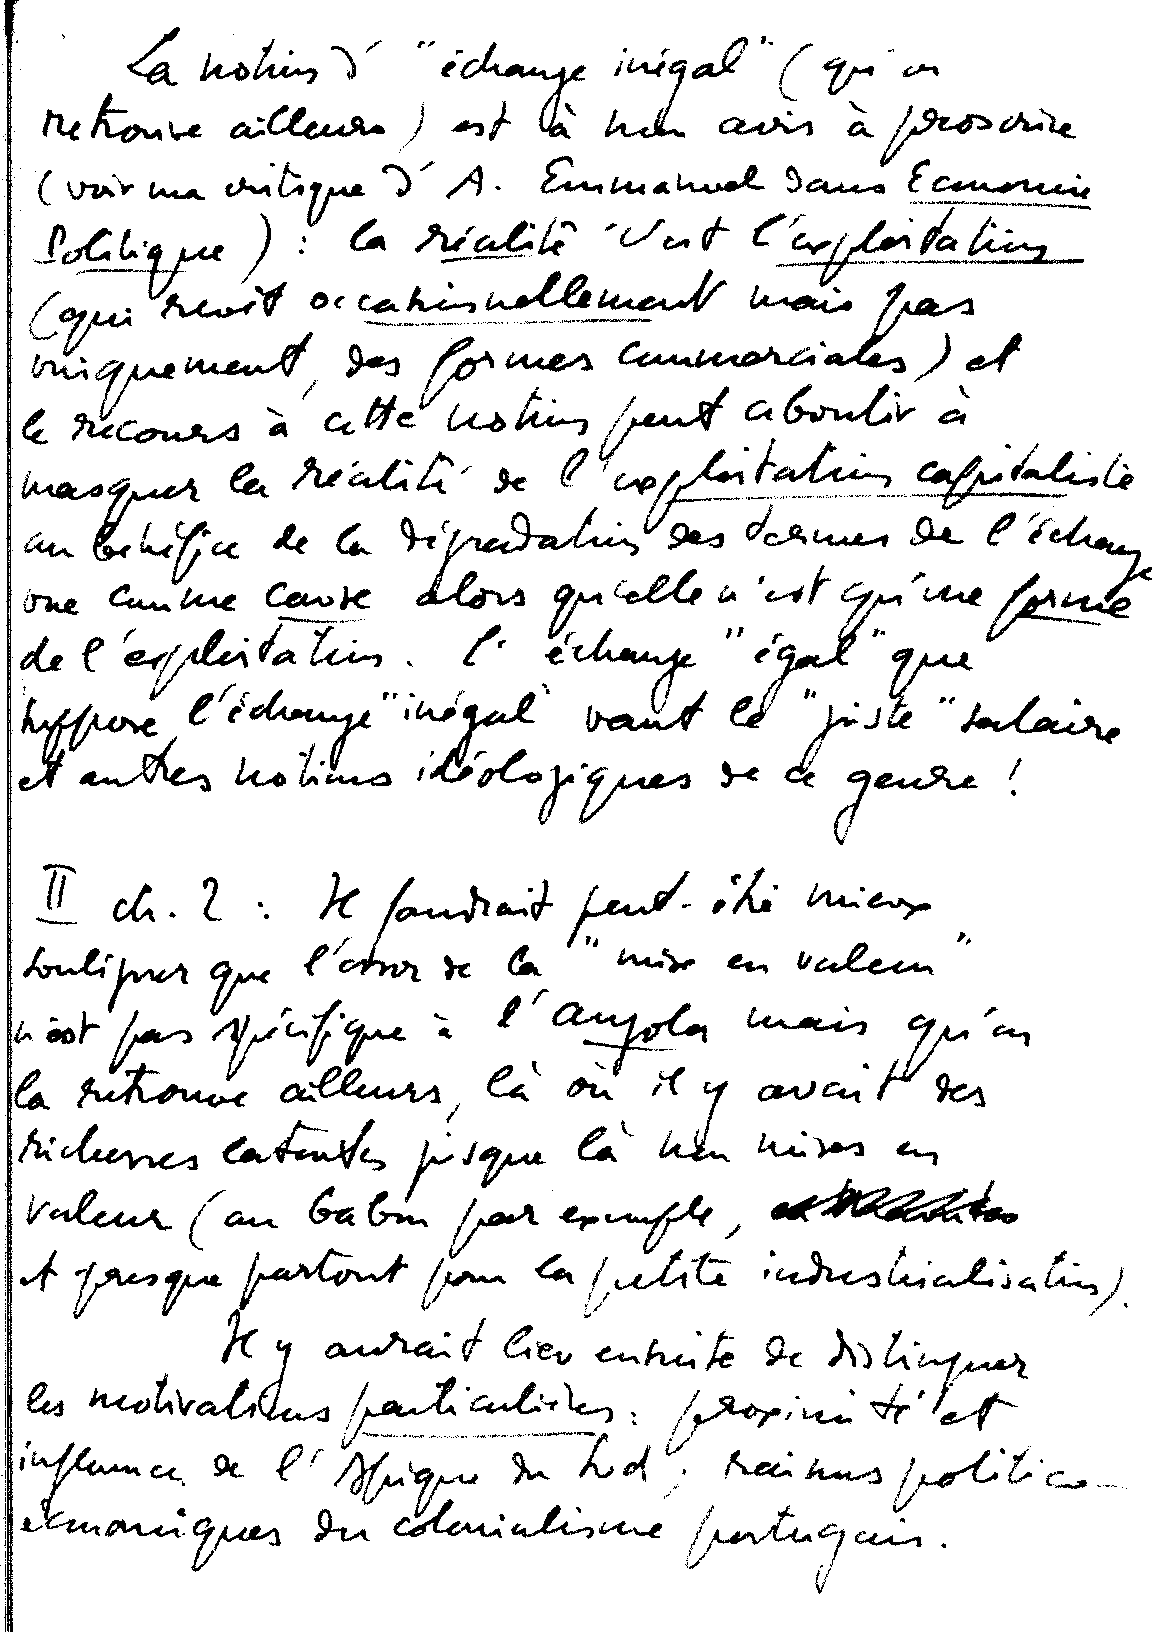 La notion d' "échange inégal" (qu'on
retrouve ailleurs) est à mon avis à proscrire
(voir ma critique d'A. Emmanuel dans Economie
Politique) : la réalité c'est l'exploitation
(qui revêt occasionnellement mais pas
uniquement, des formes commerciales) et
le recours à cette notion peut aboutir à
masquer la réalité de l'exploitation capitaliste
au bénéfice de la dégradation des termes de l'échange
vue comme cause alors qu'elle n'est qu'une forme
de l'exploitation. L'échange "égal" que
suppose l'échange "inégal" vaut le "juste" salaire
et autres notions idéologiques de ce genre !
II ch. 2 : Il faudrait peut-être mieux
souligner que l'essor de la "mise en valeur"
n'est pas spécifique à l'Angola mais qu'on
la retrouve ailleurs, là où il y avait des
richesses latentes jusque là non mises en
valeur (au Gabon par exemple,
et presque partout pour la petite industrialisation).
Il y aurait lieu ensuite de distinguer
les motivations particulières : proximité et
influence de l'Afrique du Sud ; raisons politico-
économiques du colonialisme portugais.